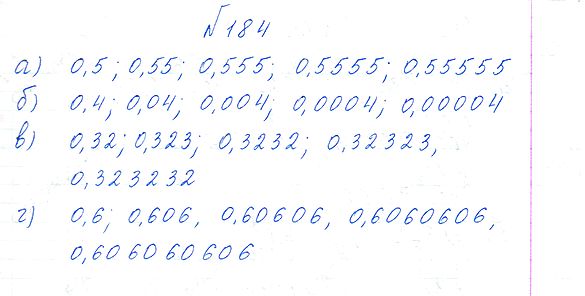 №184
а) 0,5; 0,55; 0,555; 0,5555; 0,55555
б) 0,4; 0,04; 0,004; 0,0004; 0,00004
в) 0,32; 0,323; 0,3232; 0,32323,
0,323232
г) 0,6; 0,606, 0,60606, 0,6060606,
0,606060606